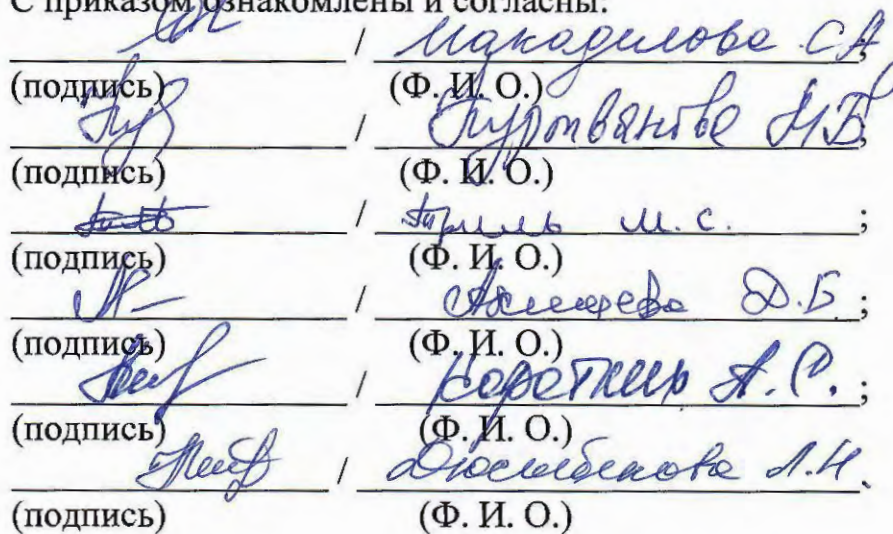 С приказом ознакомлены и согласны:
/ Макадилова С.А;
(подпись) (Ф. И. О.)
/ Нуртвянова М.Б;
(подпись) (Ф. И. О.)
/ Триль М. С. ;
(подпись) (Ф. И. О.)
/ Акишева Д.Б ;
(подпись) (Ф. И. О.)
/ Короткир А. С. ;
(подпись) (Ф. И. О.)
/ Дюсембекова Л.Н.
(подпись) (Ф. И. О.)